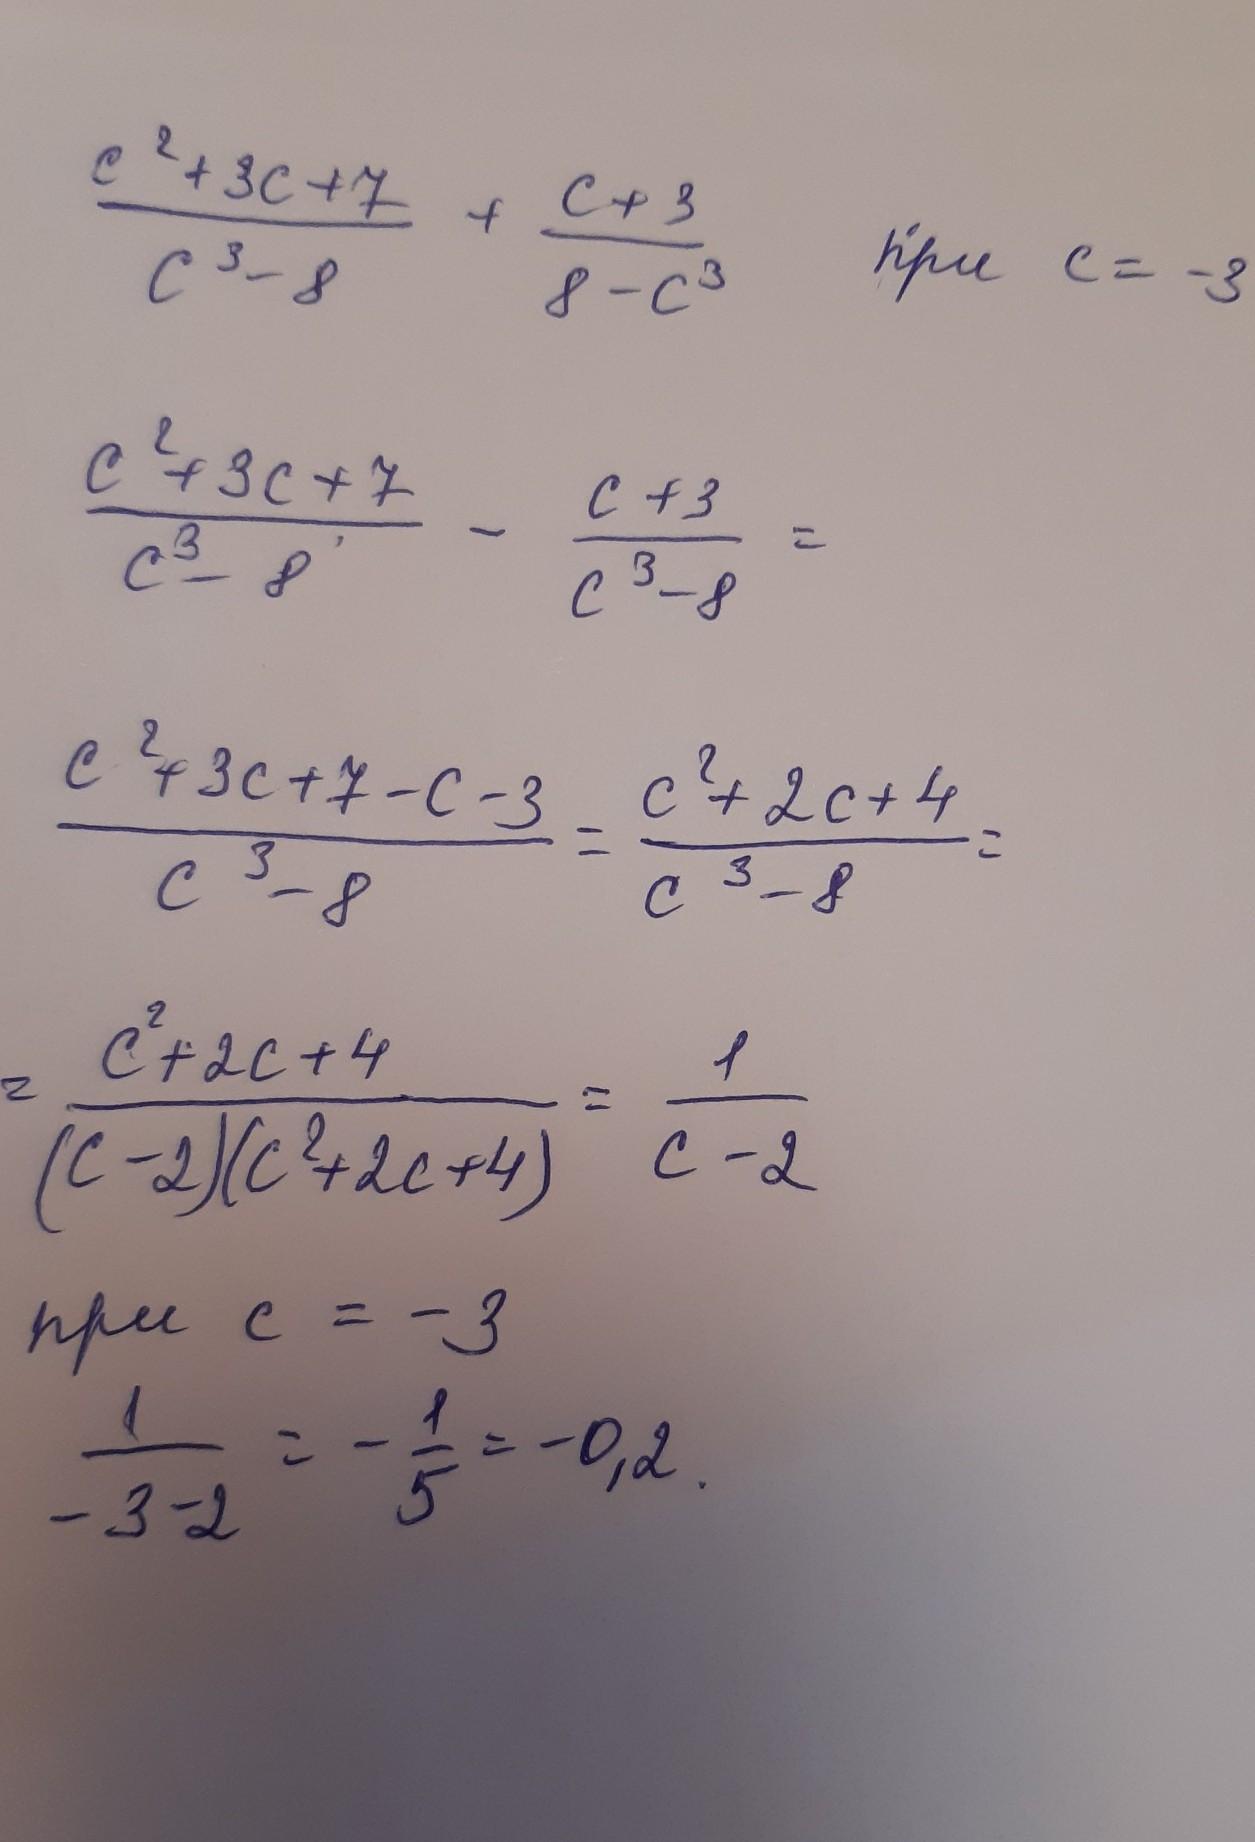 (c²+3c+7)/(c³-8) + (c+3)/(8-c³) при c = -3
(c²+3c+7)/(c³-8) - (c+3)/(c³-8) =
(c²+3c+7-c-3)/(c³-8) = (c²+2c+4)/(c³-8) =
= (c²+2c+4)/((c-2)(c²+2c+4)) = 1/(c-2)
при c = -3
1/(-3-2) = -1/5 = -0,2.